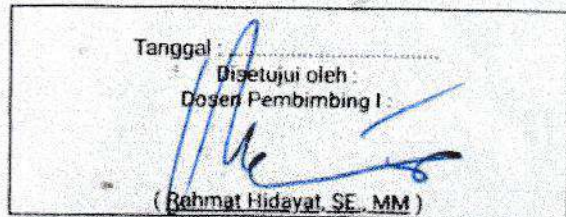 Tanggal : ........................................
Disetujui oleh :
Dosen Pembimbing I :
( Rahmat Hidayat, SE., MM )